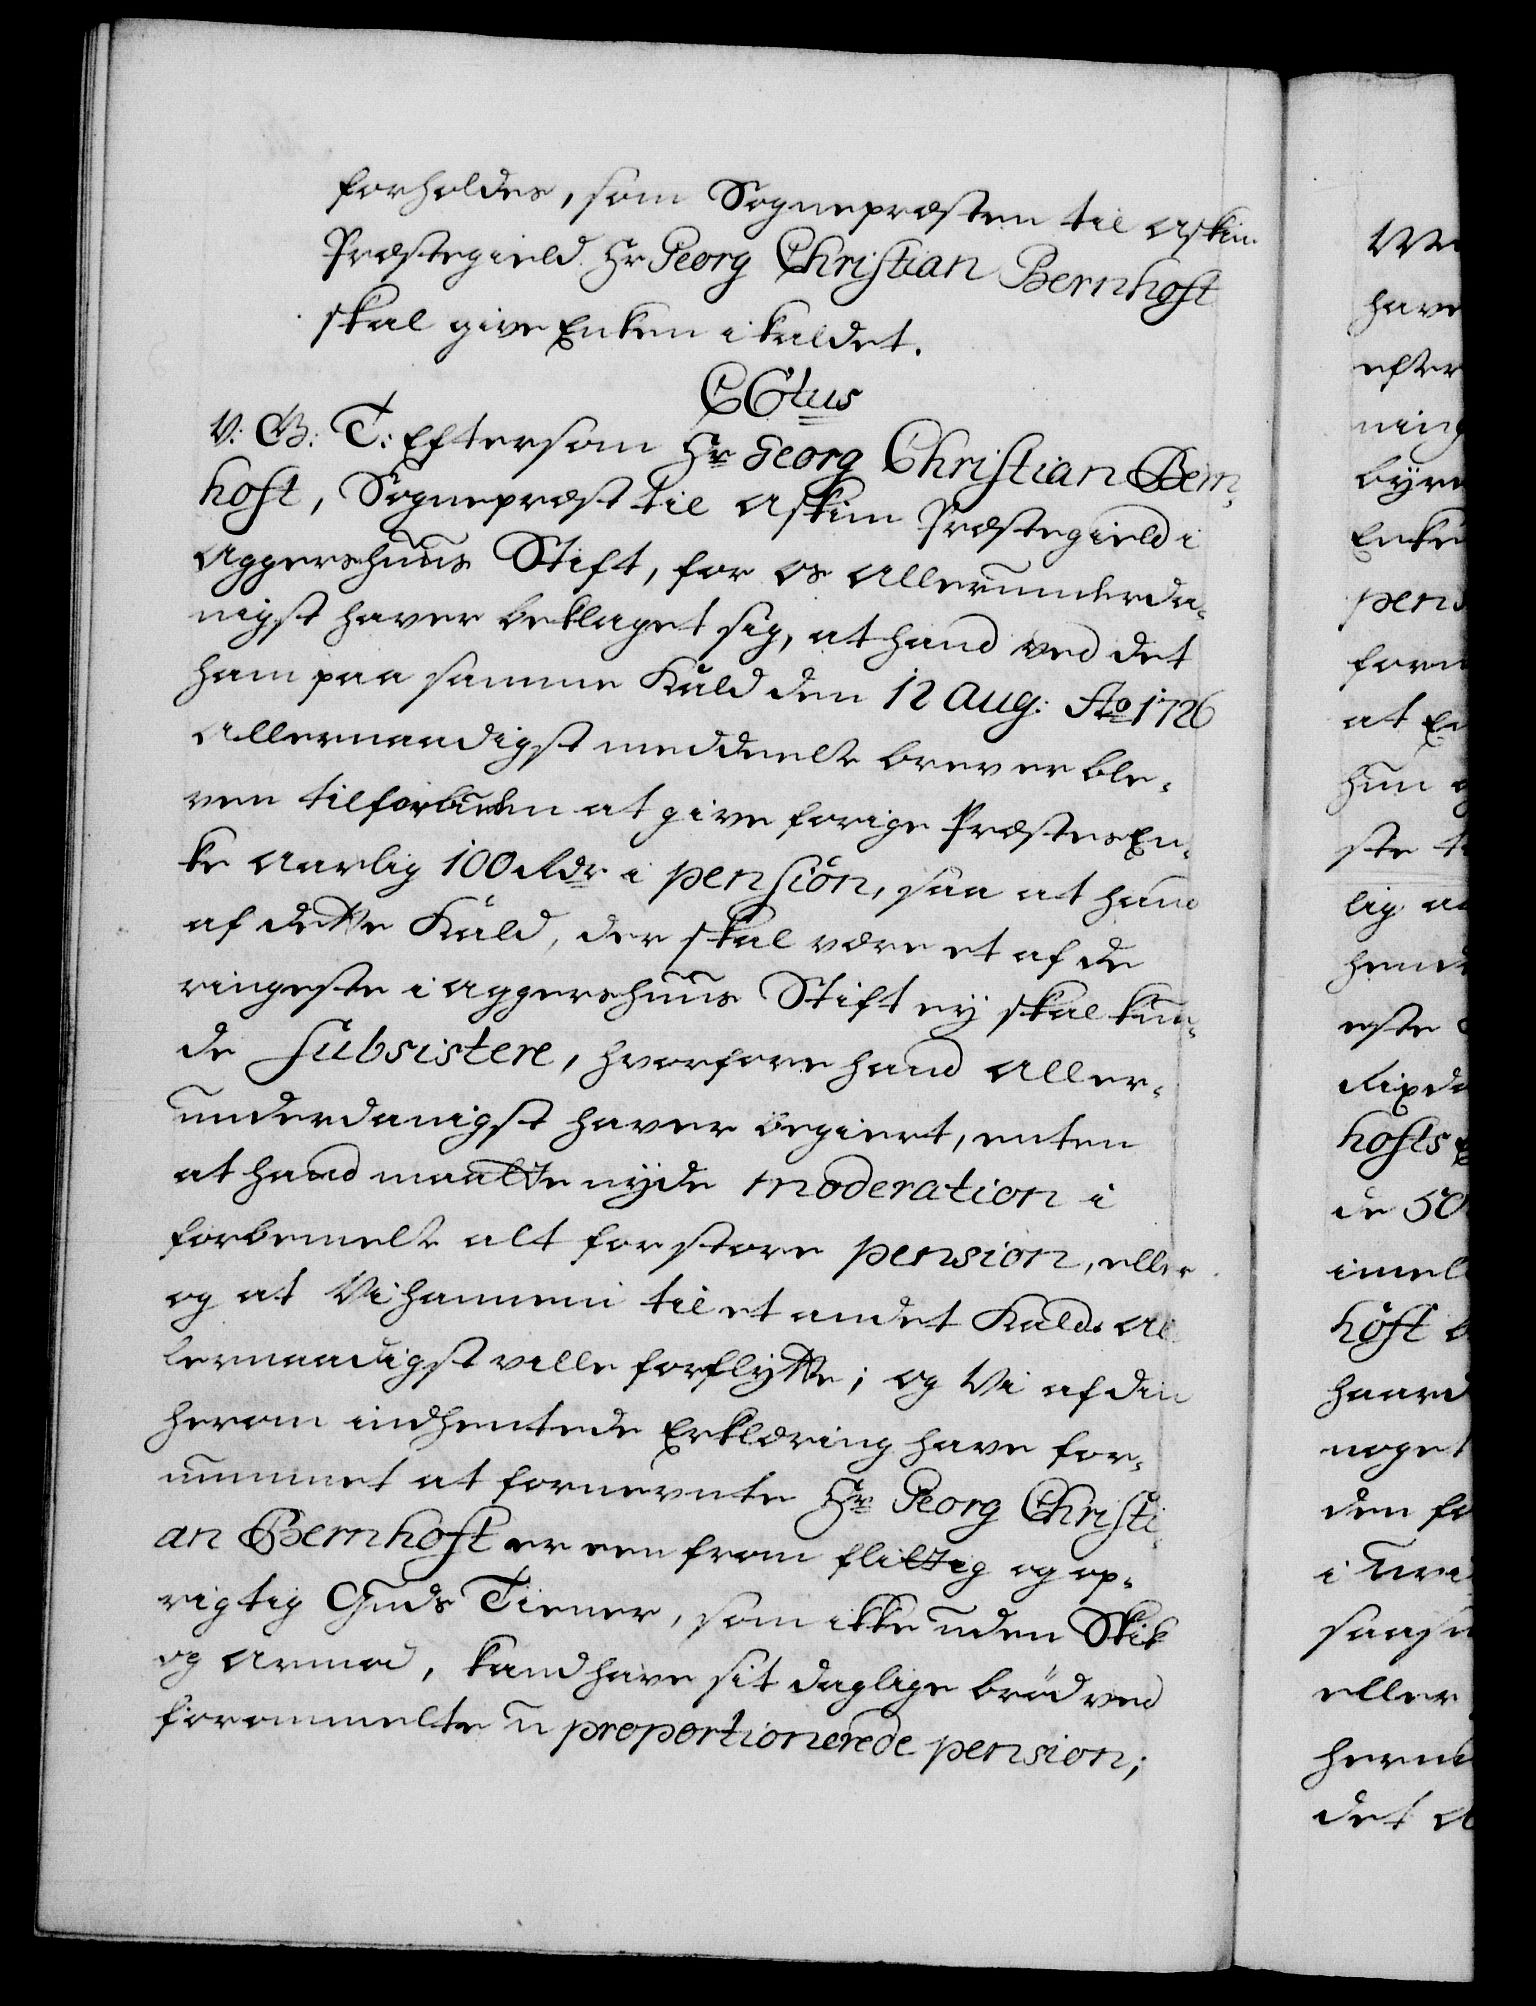 forholdes, som Sognepræsten til Askim
Præstegield Hr Georg Christian Bernhoft
skal give Enken i kaldet.
C6tus
V: G: T: Eftersom Hr Georg Christian Bern-
hoft, Sognepræst til Askim Præstegield i
Aggershuus Stift, for os allerunderda-
nigst haver beklaget sig, at hand ved det
ham paa samme Kald den 12 Aug: Ao 1726
allernaadigst meddeelte brev er ble-
ven tilforbunden at give forige Præstes En-
ke aarlig 100 Rdr i pension, saa at hand
af dette Kald, der skal være et af de
ringeste i Aggershuus Stift ey skal kun-
de subsistere, hvorfore hand aller-
underdanigst haver begiert, enten
at hand maatte nyde moderation i
forbemelte alt for store pension, eller
og at Vi hannem til et andet Kald al
lernaadigst ville forflytte; og Vi af din
herom indhentede Erklæring have for-
nummet at fornevnte Hr Georg Christi-
an Bernhoft er een from flittig og op-
rigtig Guds Tiener, som ikke uden Skik
og armod, kand have sit daglige brød ved
forommelte u proportionerede pension;
have
efter
ning
byrd
pens
forn
at En
hun
ste
lig
hend
este
Rixda
hofts
de 50
imel
hoft
haard
noget
den
i
eller
det